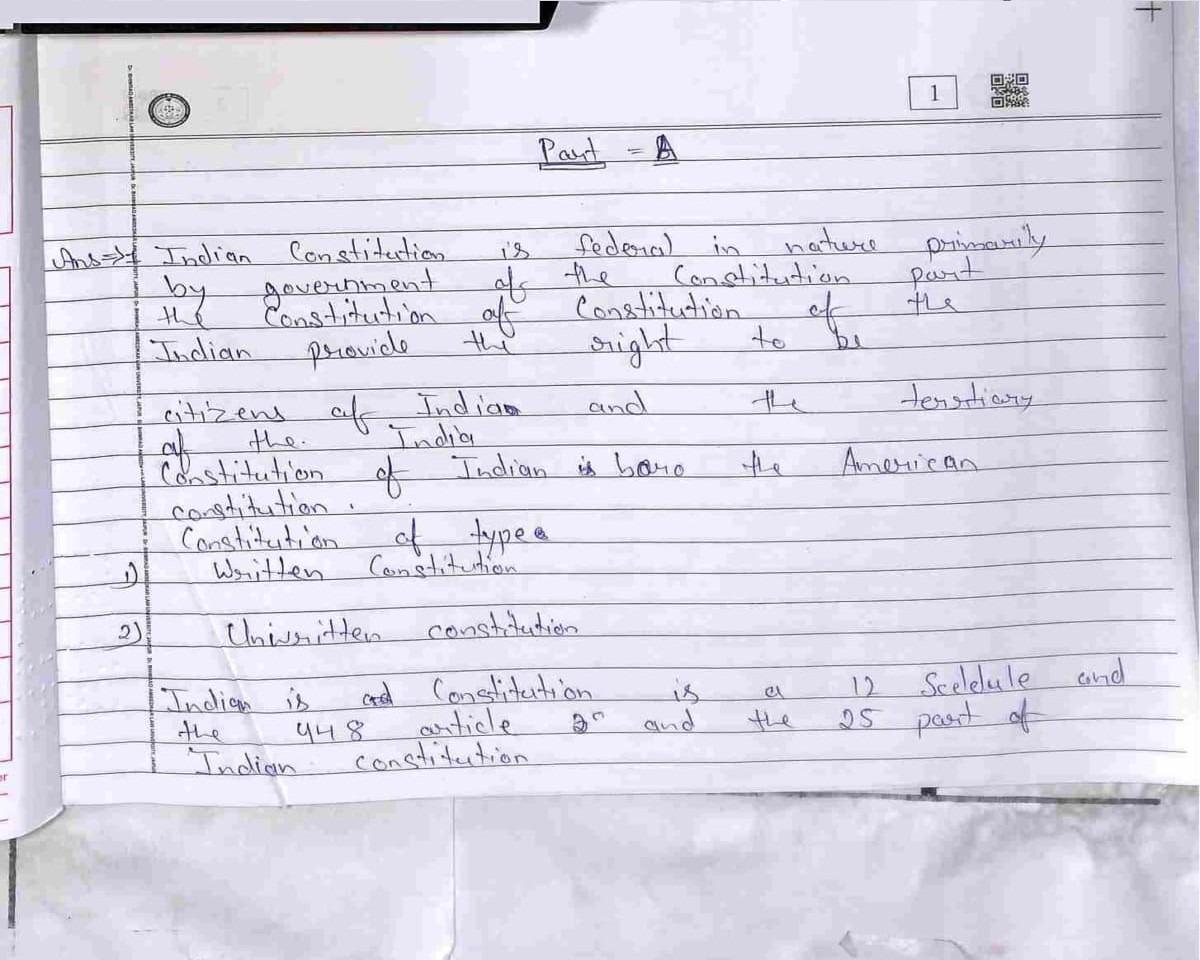 1
Part = A
Ans⇒1 Indian Constitution is federal in nature primarily
by government of the Constitution part
the Constitution of Constitution of the
Indian provide the right to be
citizens of India and the terrtiary
of the. India
Constitution of Indian is boro the American
constitution.
Constitution of type
1) Written Constitution
2) Unwritten constitution
Indian is Constitution is a 12 Sceldule and
the 448 article and the 25 part of
Indian constitution